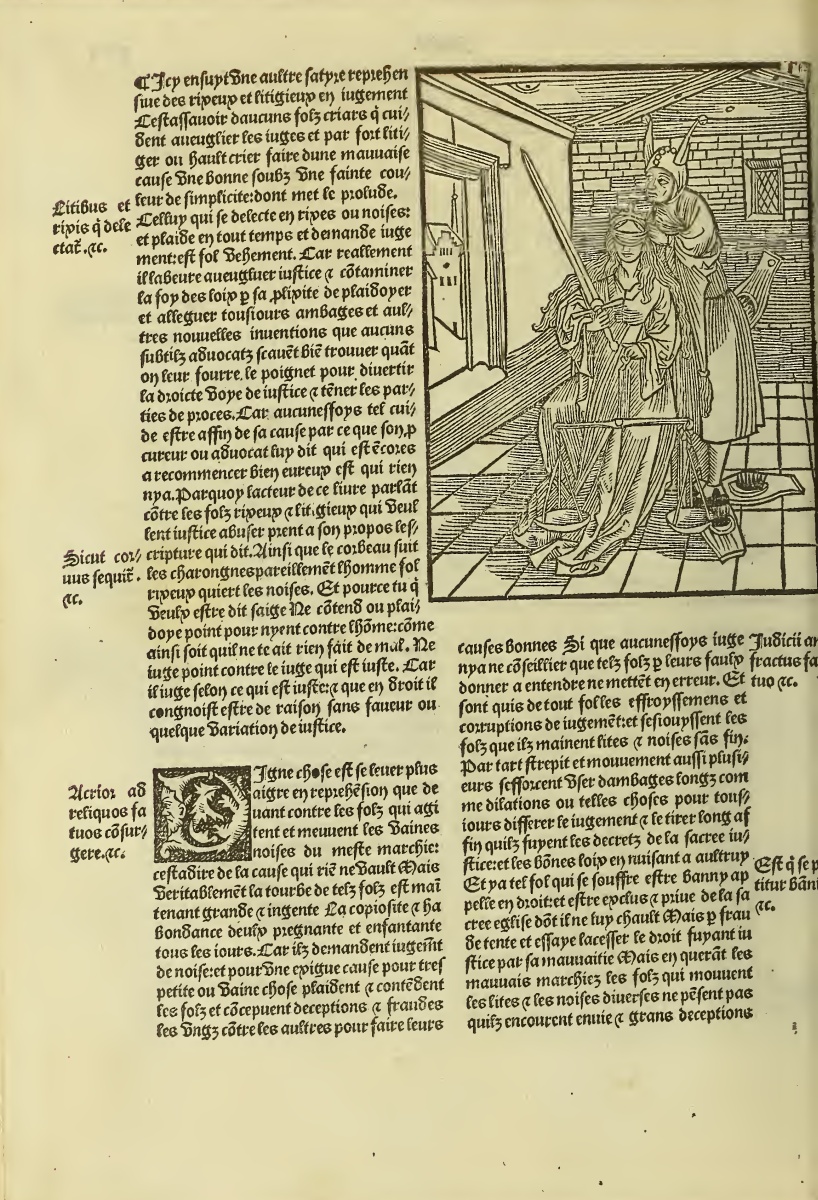 ¶ Icy ensuyt vne aultre satyre reprehen
siue des ripeux et litigieux en iugement
Cestassauoir daucuns folz criars q̃ cui/
dent aueuglier les iuges et par fort liti/
ger ou hault crier faire dune mauuaise
cause vne bonne soubz vne fainte cou/
leur de simplicite: dont met le prolude.
Litibus et
ripis q̃ dele
ctat̃. ⁊c.
Celluy qui se delecte en ripes ou noises:
et plaide en tout temps et demande iuge
ment: est fol vehement. Car reallement
il labeure aueugluer iustice ⁊ cõtaminer
la foy des loix p̱ sa ꝓlixite de plaidoyer
et alleguer tousiours ambages et aul/
tres nouuelles inuentions que aucuns
subtilz aduocatz scauẽt biẽ trouuer quãt
on leur fourre le poignet pour diuertir
la droicte voye de iustice ⁊ tẽner les par/
ties de proces. Car aucunesfoys tel cui/
de estre affin de sa cause par ce que son ꝓ
cureur ou aduocat luy dit qui est ẽcores
a recommencer bien eureux est qui rien
nya. Parquoy lacteur de ce liure parlãt
cõtre les folz ripeux ⁊ litigieux qui veul
lent iustice abuser prent a son propos les/
Sicut cor/
uus sequit̃.
⁊c.
cripture qui dit. Ainsi que le corbeau suit
les charongnes pareillemẽt lhomme fol
ripeux quiert les noises. Et pource tu q̃
veulx estre dit saige Ne cõtend ou plai/
doye point pour nyent contre lhõme: cõme
ainsi soit quil ne te ait rien fait de mal. Ne
iuge point contre le iuge qui est iuste. Car
il iuge selon ce qui est iuste: ⁊ que en droit il
congnoist estre de raison sans faueur ou
quelque variation de iustice.
Acrior ad
reliquos fa
tuos cõsur/
gere. ⁊c.
DIgne chose est se leuer plus
aigre en reprehẽsion que de
uant contre les folz qui agi
tent et meuuent les vaines
noises du meste marchie:
cestadire de la cause qui riẽ ne vault Mais
veritablemẽt la tourbe de telz folz est maĩ
tenant grande ⁊ ingente La copiosite ⁊ ha
bondance deulx pregnante et enfantante
tous les iours. Car ilz demandent iugem̃t
de noise: et pour vne exigue cause pour tres
petite ou vaine chose plaident ⁊ contẽdent
les folz et cõcepuent deceptions ⁊ fraudes
les vngz cõtre les aultres pour faire leurs
causes bonnes Si que aucunesfoys iuge
nya ne cõseillier que telz folz p̱ leurs faulx
donner a entendre ne mettẽt en erreur. Et
Iudicii an
fractus fa
tuo ⁊c.
sont quis de tout folles effroyssemens et
corruptions de iugemẽt: et sesiouyssent les
folz que ilz mainent lites ⁊ noises sãs fin.
Par tart strepit et mouuement aussi plusi/
eurs sefforcent vser dambages longz com
me dilations ou telles choses pour tous/
iours differer le iugement ⁊ le tirer long af
fin quilz fuyent les decretz de la sacree iu/
stice: et les bõnes loix en nuisant a aultruy
Est q̃ se p
titur bãni
⁊c.
Et ya tel fol qui se souffre estre banny ap
pelle en droit: et estre exclus ⁊ priue de la sa
cree eglise dõt il ne luy chault Mais p̱ frau
de tente et essaye lacesser le droit fuyant iu
stice par sa mauuaitie Mais en querãt les
mauuais marchiez les folz qui mouuent
les lites ⁊ les noises diuerses ne pẽsent pas
quilz encourent enuie ⁊ grans deceptions